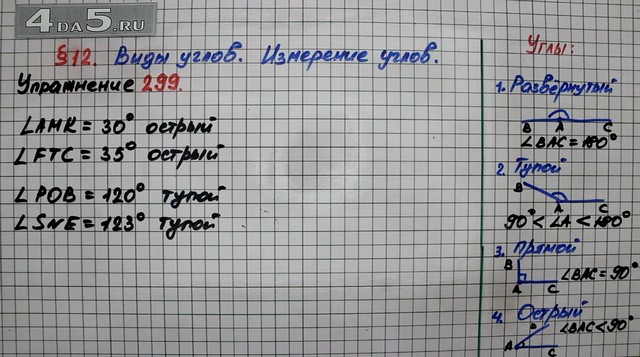 4DA5.RU
§12. Виды углов. Измерение углов.
Упражнение 299.
∠AMK = 30° острый
∠FTC = 35° острый
∠POB = 120° тупой
∠SNE = 123° тупой
Углы:
1. Развёрнутый
B A C
∠BAC = 180°
2. Тупой
B
A C
90° < ∠A < 180°
3. Прямой
B
∠BAC = 90°
A C
4. Острый
B ∠BAC < 90°
A C